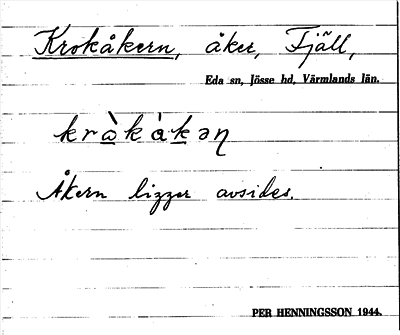 Krokåkern, åker, Fjäll,
Eda sn, Jösse hd, Värmlands län.
krò̀kàkəɳ
Åkern ligger avsides.
PER HENNINGSSON 1944.